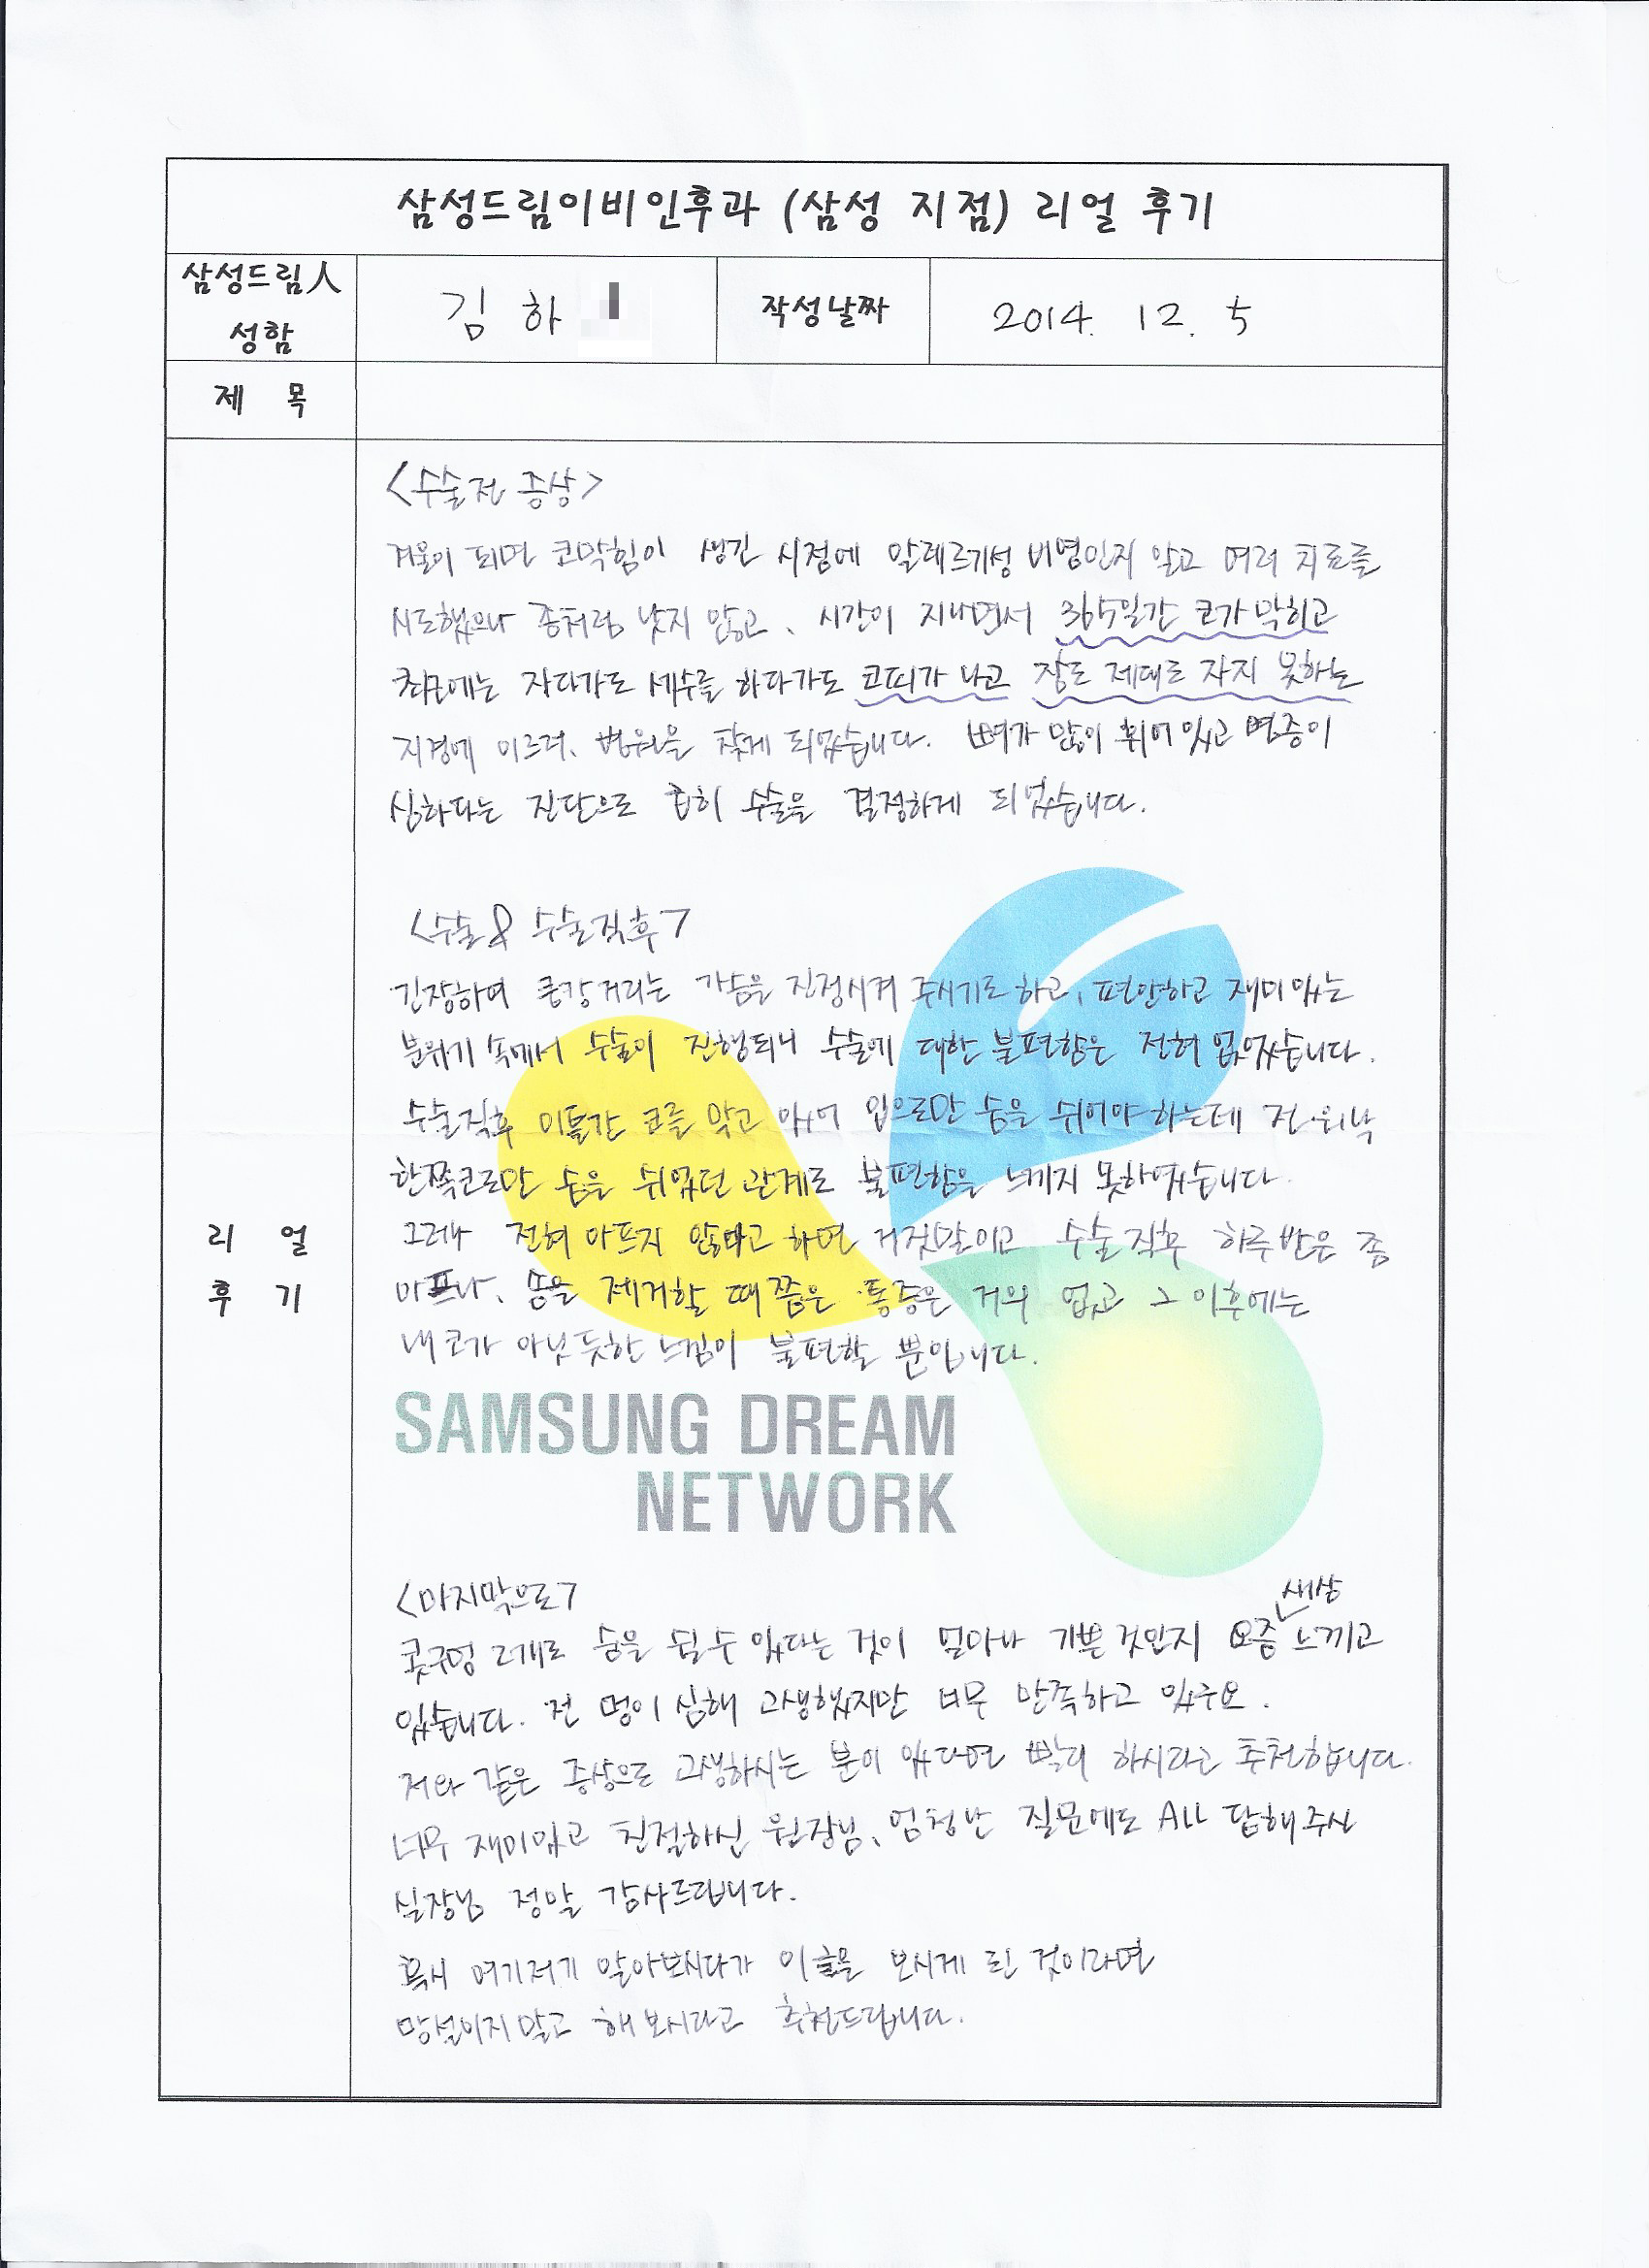 삼성드림이비인후과 (삼성 지점) 리얼 후기
삼성드림人
성함
김 하
작성날짜
2014. 12. 5
제 목
<수술전 증상>
겨울이 되면 코막힘이 생긴 시점에 알레르기성 비염인지 알고 여러 치료를
시도했으나 좀처럼 낫지 않고, 시간이 지나면서 365일간 코가 막히고
최근에는 자다가도 세수를 하다가도 코피가 나고 잠도 제대로 자지 못하는
지경에 이르러, 병원을 찾게 되었습니다. 뼈가 많이 휘어 있고 염증이
심하다는 진단으로 급히 수술을 결정하게 되었습니다.
<수술& 수술직후>
긴장하여 콩캉거리는 가슴을 진정시켜 주시기도 하고, 편안하고 재미있는
분위기 속에서 수술이 진행되니 수술에 대한 불편함은 전혀 없었습니다.
수술직후 이틀간 코를 막고 있어 입으로만 숨을 쉬어야 하는데 전 워낙
한쪽코로만 숨을 쉬었던 관계로 불편함을 느끼지 못하였습니다.
그러나 전혀 아프지 않다고 하면 거짓말이고 수술직후 하루 반은 좀
아프나, 솜을 제거할 때 쯤은 통증은 거의 없고 그 이후에는
내 코가 아닌듯한 느낌이 불편할 뿐입니다.
리 얼
후 기
SAMSUNG DREAM
NETWORK
<마지막으로>
콧구멍 2개로 숨을 쉴 수 있다는 것이 얼마나 기쁜 것인지 요즘 새삼 느끼고
있습니다. 전 멍이 심해 고생했지만 너무 만족하고 있구요.
저와 같은 증상으로 고생하시는 분이 있다면 빨리 하시라고 추천합니다.
너무 재미있고 친절하신 원장님, 엄청난 질문에도 ALL 답해주신
실장님 정말 감사드립니다.
혹시 여기저기 알아보시다가 이 글을 보시게 된 것이라면
망설이지말고 해보시라고 추천드립니다.